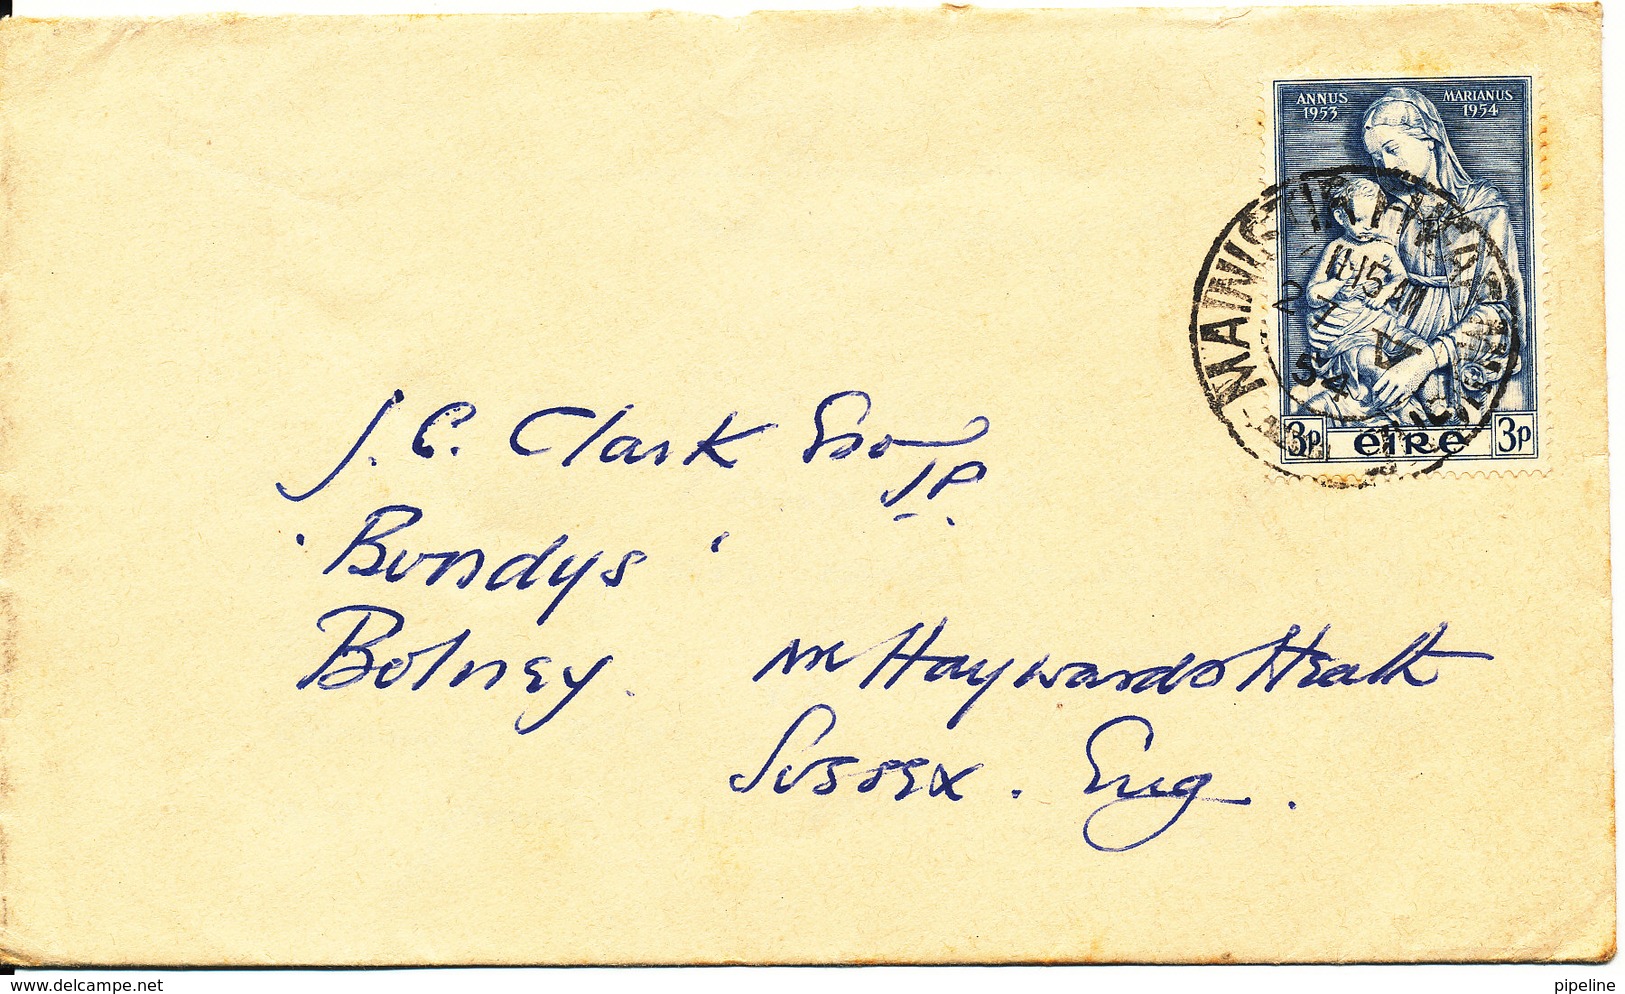 ANNUS MARIANUS
1953 1954
11.15 AM
2 7
54
3p éIRE 3p
J. C. Clark Esq
J.P.
'Bondys'
Bolney. nr Haywards Heath
Sussex. Eng.
delcampe.net
pipeline